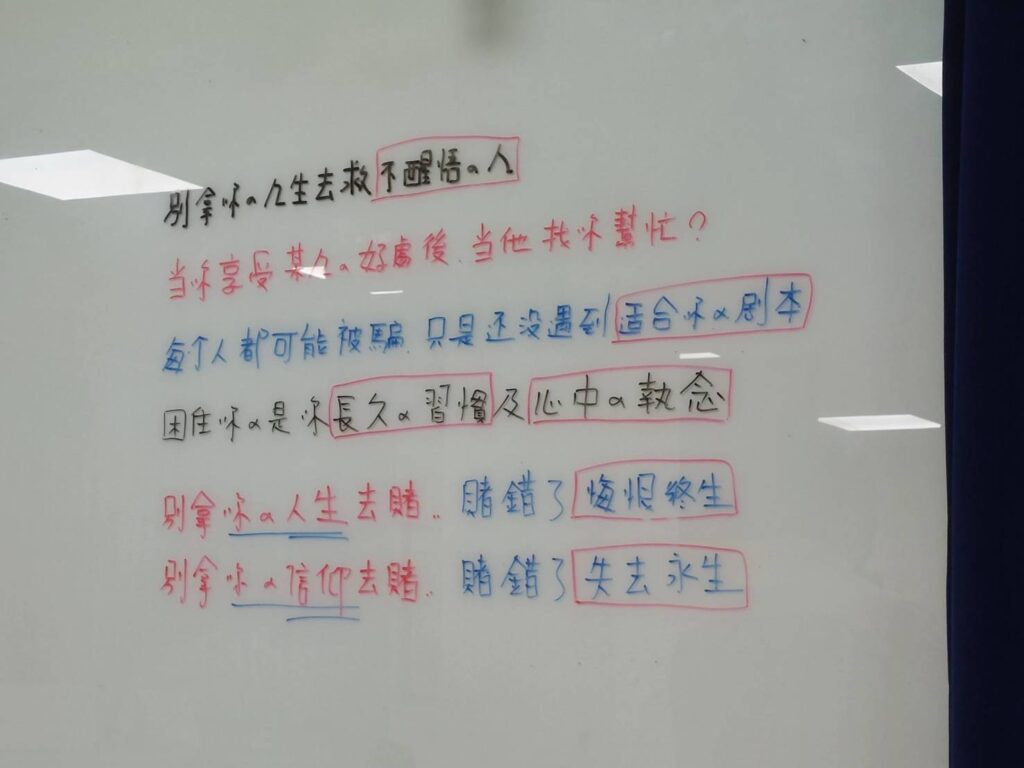 別拿你の人生去救不醒悟の人
当你享受某人の好處後.当他找你幫忙?
每个人都可能被騙.只是还没遇到适合你の剧本
困住你の是你長久の習慣及心中の執念
別拿你の人生去賭.. 賭錯了悔恨終生
別拿你の信仰去賭.. 賭錯了失去永生